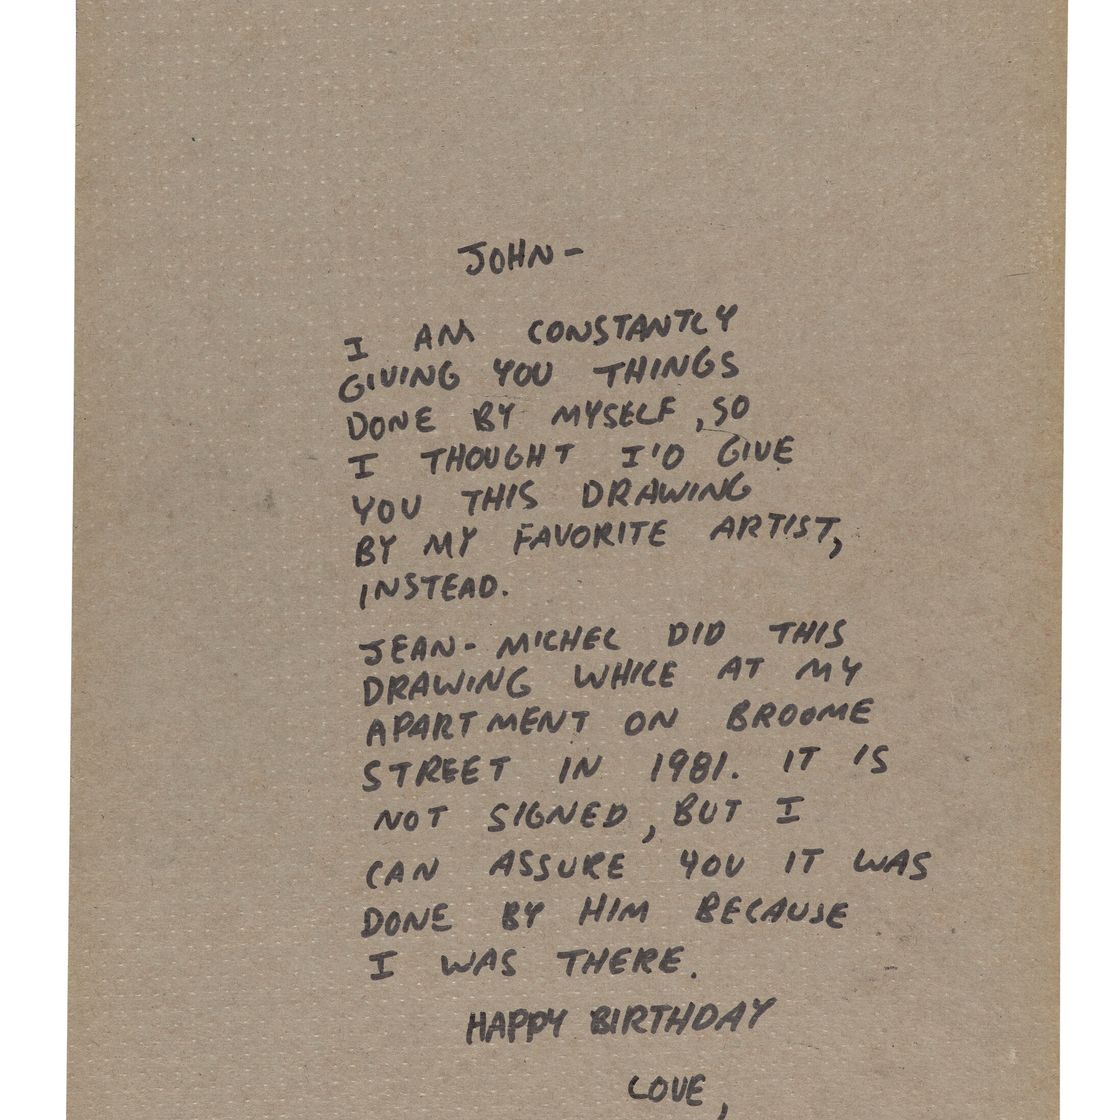 JOHN-
I AM CONSTANTLY
GIVING YOU THINGS
DONE BY MYSELF, SO
I THOUGHT I'D GIVE
YOU THIS DRAWING
BY MY FAVORITE ARTIST,
INSTEAD.
JEAN-MICHEL DID THIS
DRAWING WHILE AT MY
APARTMENT ON BROOME
STREET IN 1981. IT IS
NOT SIGNED, BUT I
CAN ASSURE YOU IT WAS
DONE BY HIM BECAUSE
I WAS THERE.
HAPPY BIRTHDAY
LOVE,